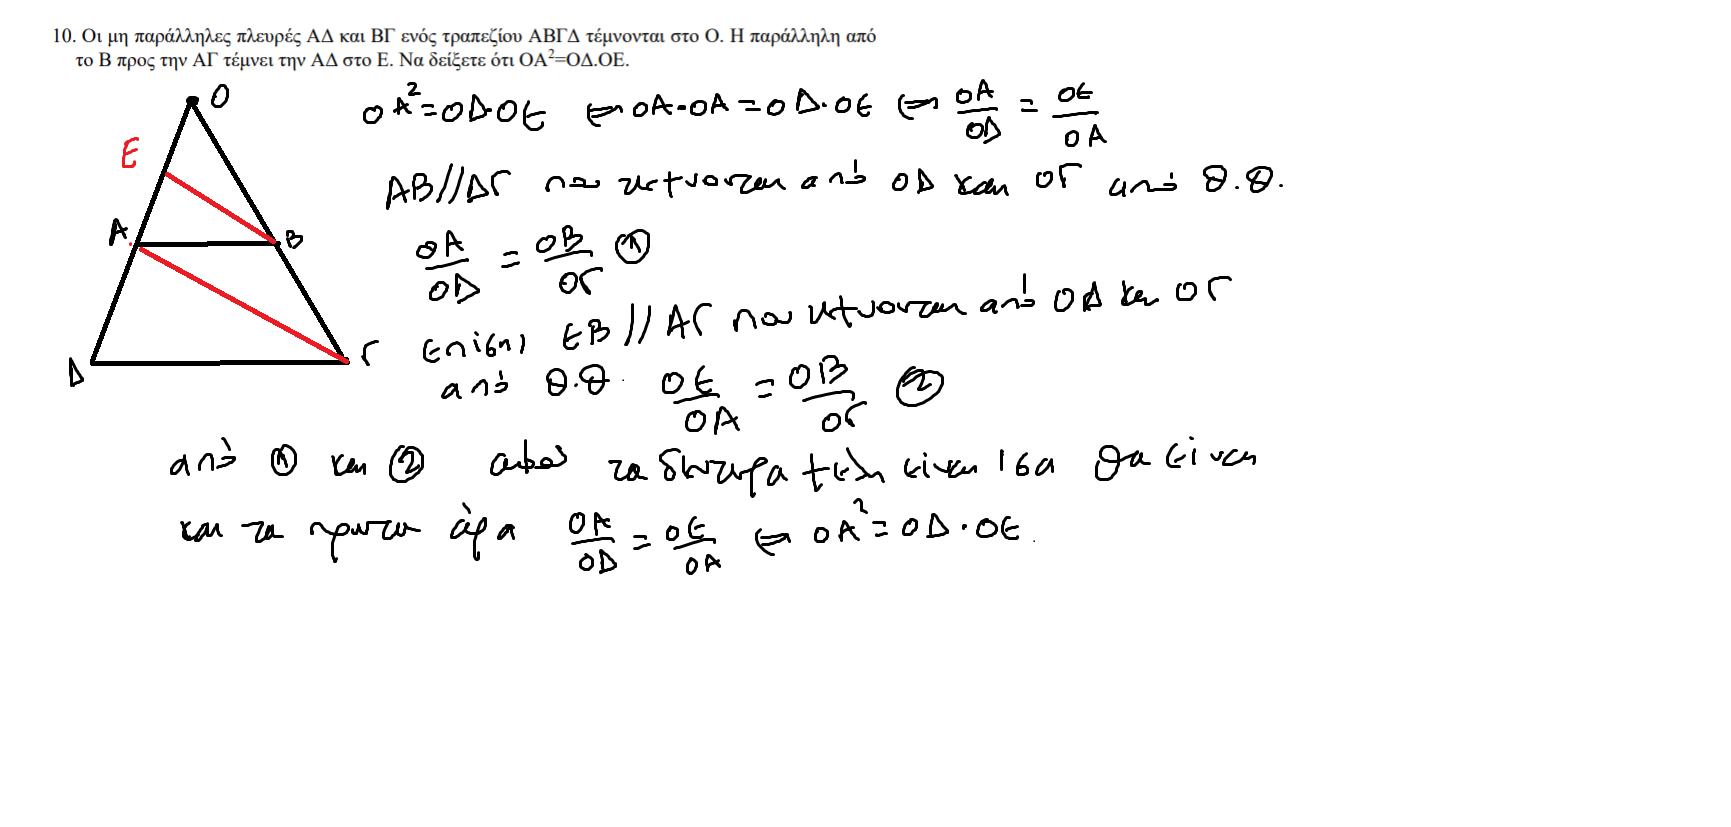 10. Οι μη παράλληλες πλευρές ΑΔ και ΒΓ ενός τραπεζίου ΑΒΓΔ τέμνονται στο Ο. Η παράλληλη από
το Β προς την ΑΓ τέμνει την ΑΔ στο Ε. Να δείξετε ότι ΟΑ²=ΟΔ.ΟΕ.
Ο
Ε
Α
Β
Δ
Γ
ΟΑ²=ΟΔ·ΟΕ ⇔ ΟΑ·ΟΑ=ΟΔ·ΟΕ ⇔ ΟΑ/ΟΔ = ΟΕ/ΟΑ
ΑΒ//ΔΓ που τέμνονται από ΟΔ και ΟΓ από Θ.Θ.
ΟΑ/ΟΔ = ΟΒ/ΟΓ ①
επίσης ΕΒ//ΑΓ που τέμνονται από ΟΔ και ΟΓ
από Θ.Θ. ΟΕ/ΟΑ = ΟΒ/ΟΓ ②
από ① και ② αφού τα δεύτερα μέλη είναι ίσα θα είναι
και τα πρώτα άρα ΟΑ/ΟΔ = ΟΕ/ΟΑ ⇔ ΟΑ²=ΟΔ·ΟΕ.